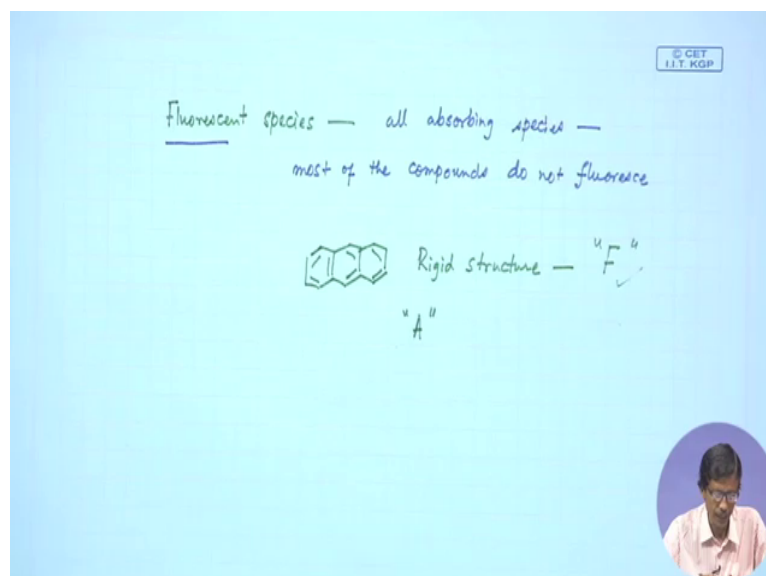 © CET
I.I.T. KGP
Fluorescent species — all absorbing species —
most of the compounds do not fluoresce
Rigid structure — "F"
"A"